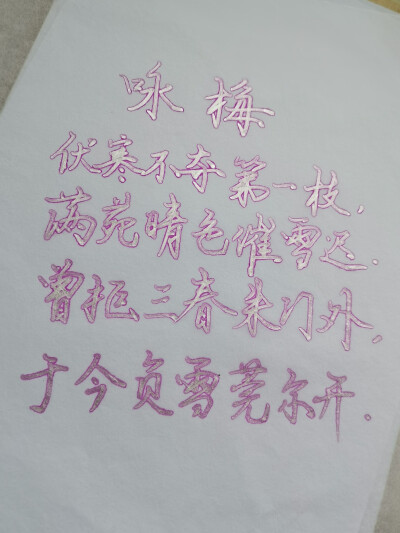 咏梅
伏寒不夺第一枝,
满苑晴色催雪迟.
曾拒三春来门外,
于今负雪莞尔开.